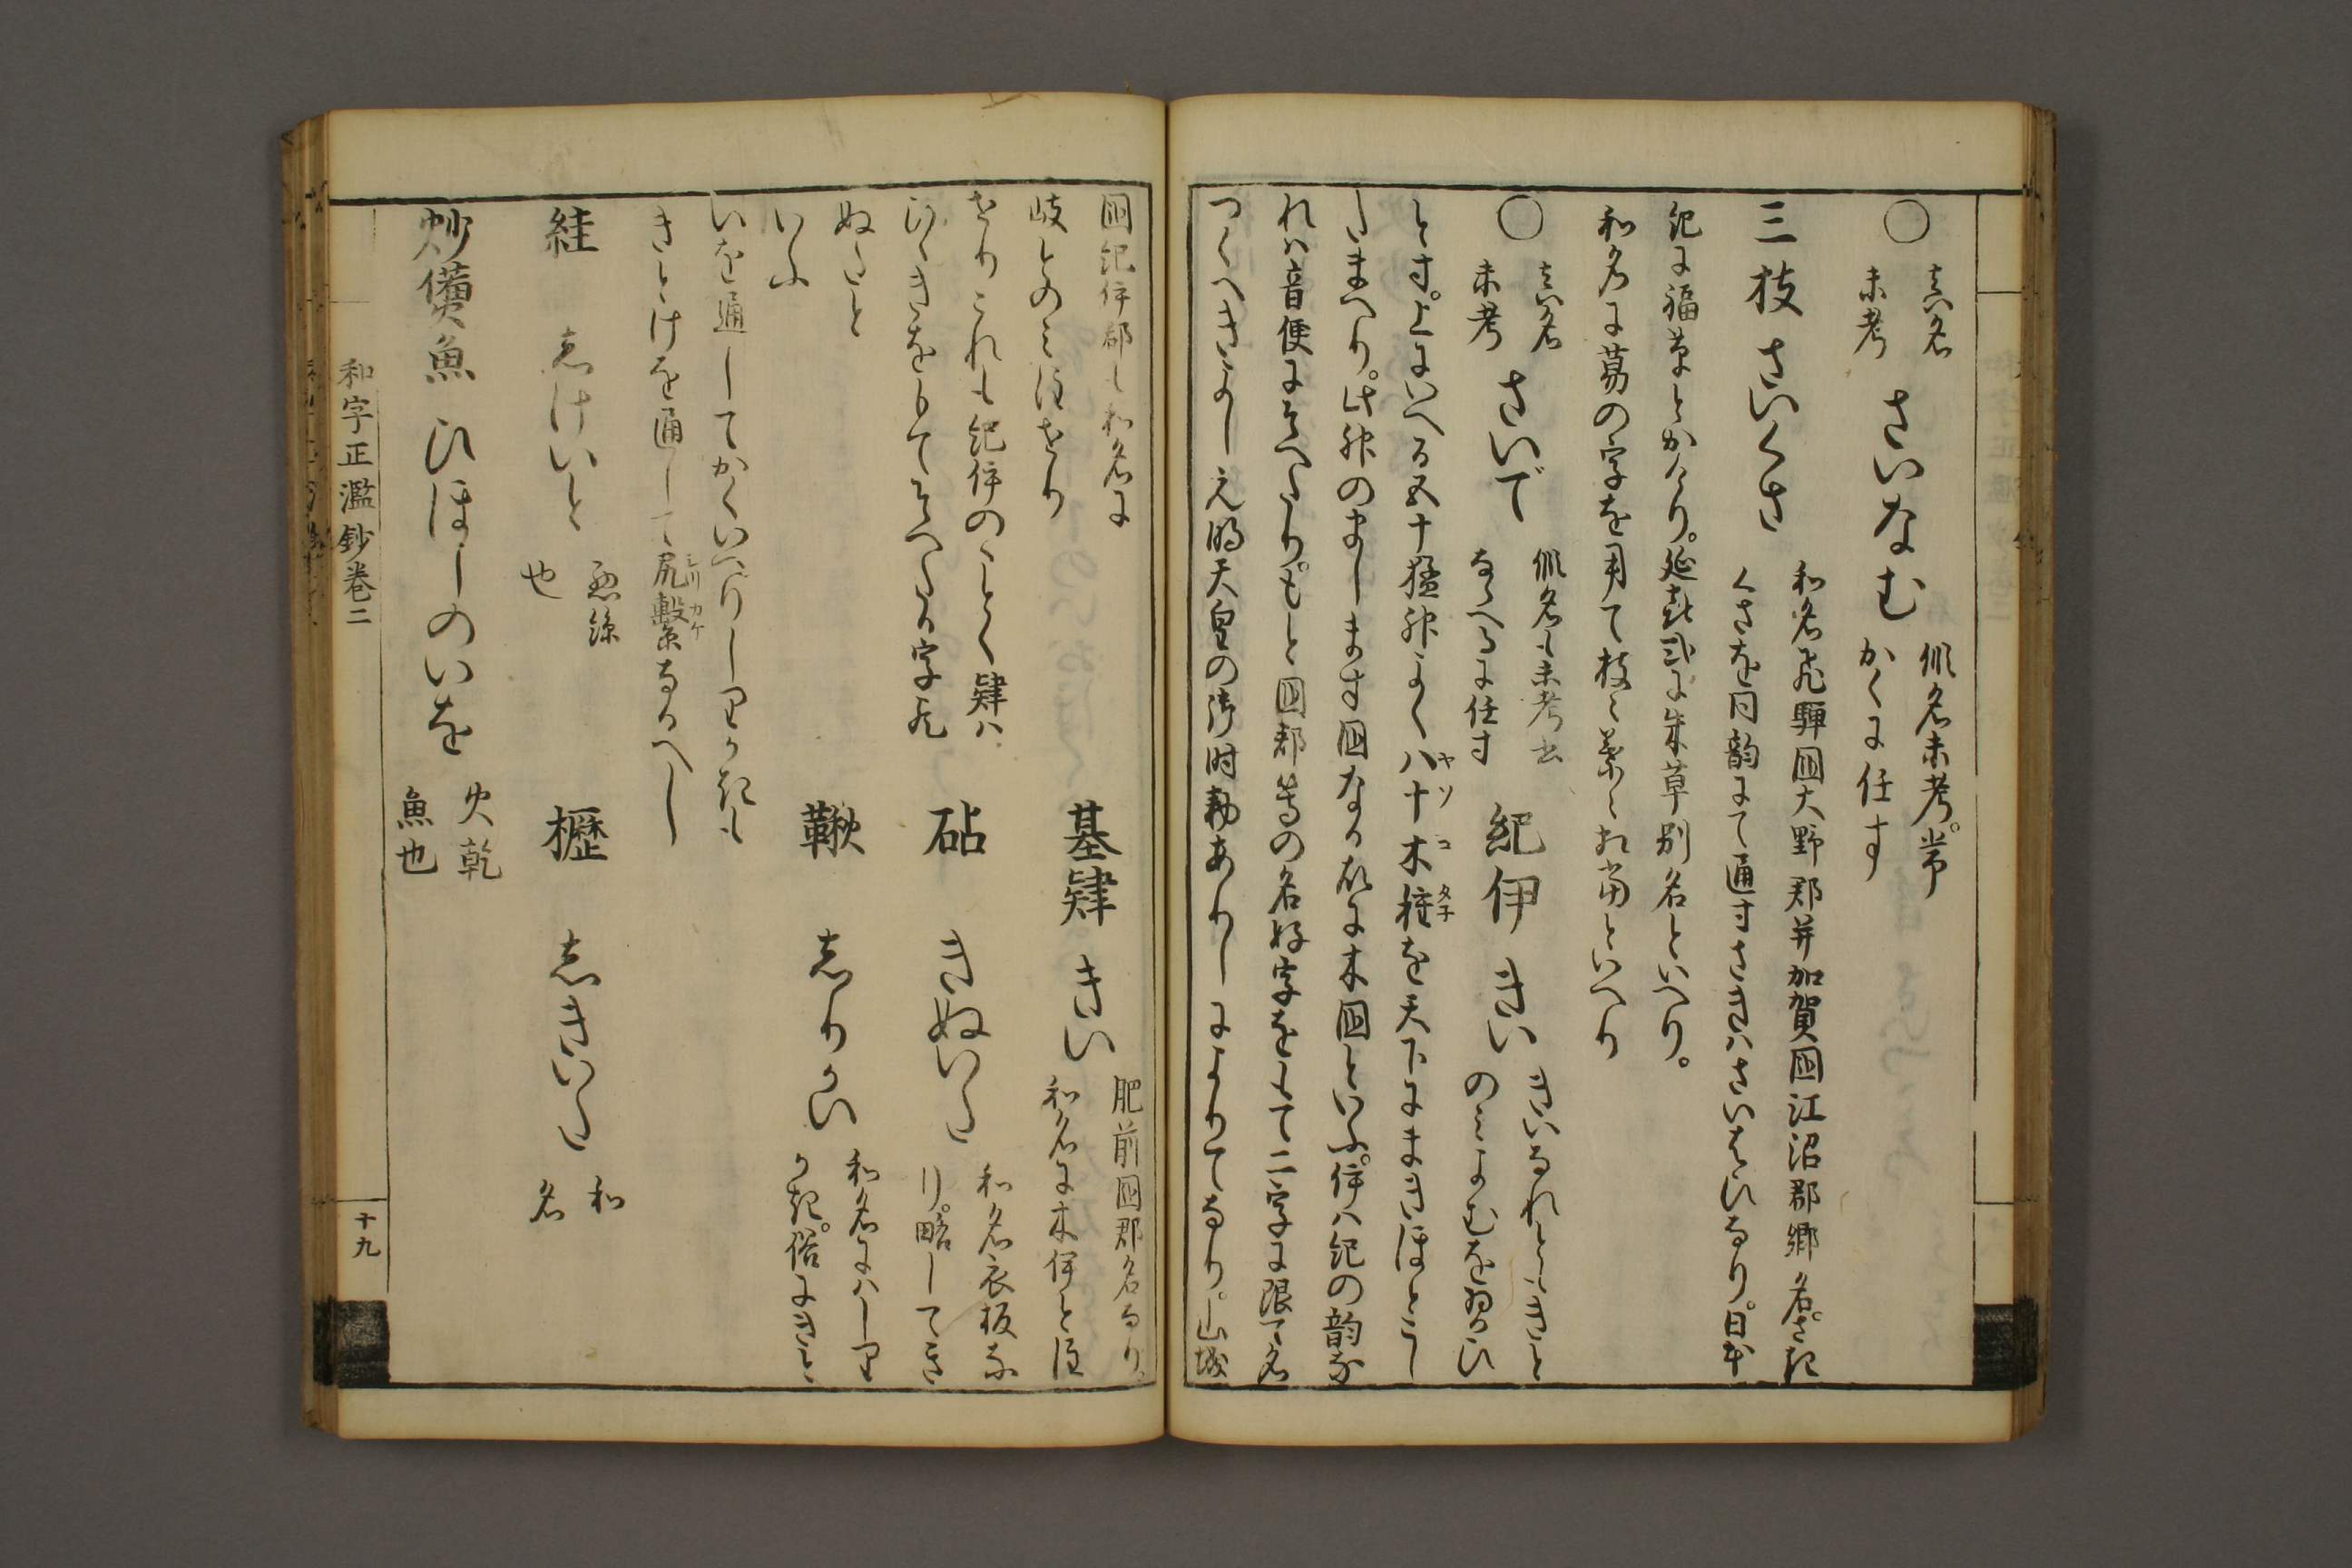 ○ 真名未考 さいなむ 仮名未考。常かくに任す
三枝 さいくさ 和名飛騨国大野郡并加賀国江沼郡郷名。さき
くさを同韵にて通す さきハさいはひなり。日本
紀に福草とかけり。延喜式に朱草別名といへり。
和名に葛の字を用て枝々葉々相当といへり
○ 真名未考 さいで 仮名も未考出ならへるに任す
紀伊 きい きいなれとゝきと
のみよむを習ひ
とす。上にいへる五十猛神よく八十木種を天下にまきほとこし
ヤソコタ子
たまへり。此神のまします国なる故に木国といふ。伊ハ紀の韵な
れハ音便にそへたり。もと国郡等の名好字をもて二字に限て名
つくへきよし元明天皇の御時勅ありしによりてなり。山城
国紀伊郡も和名に
岐とのミ注せり
基肄 きい 肥前国郡名なり。
和名に木伊と注
せりこれも紀伊のことく肄ハ
ひゝきをもてそへたる字也
砧 きぬいた 和名衣板な
り。略してきぬたと
いふ
鞦 しりかい 和名にハしり
かき。俗にきを
いを通してかくいへりしりかきも
きとけを通して尻繋なるへし
シリカケ
絓 しけいと 悪絲也
櫪 しきいた 和名
炒㷶魚 ひほしのいを 火乾魚也
和字正濫鈔巻二
十九